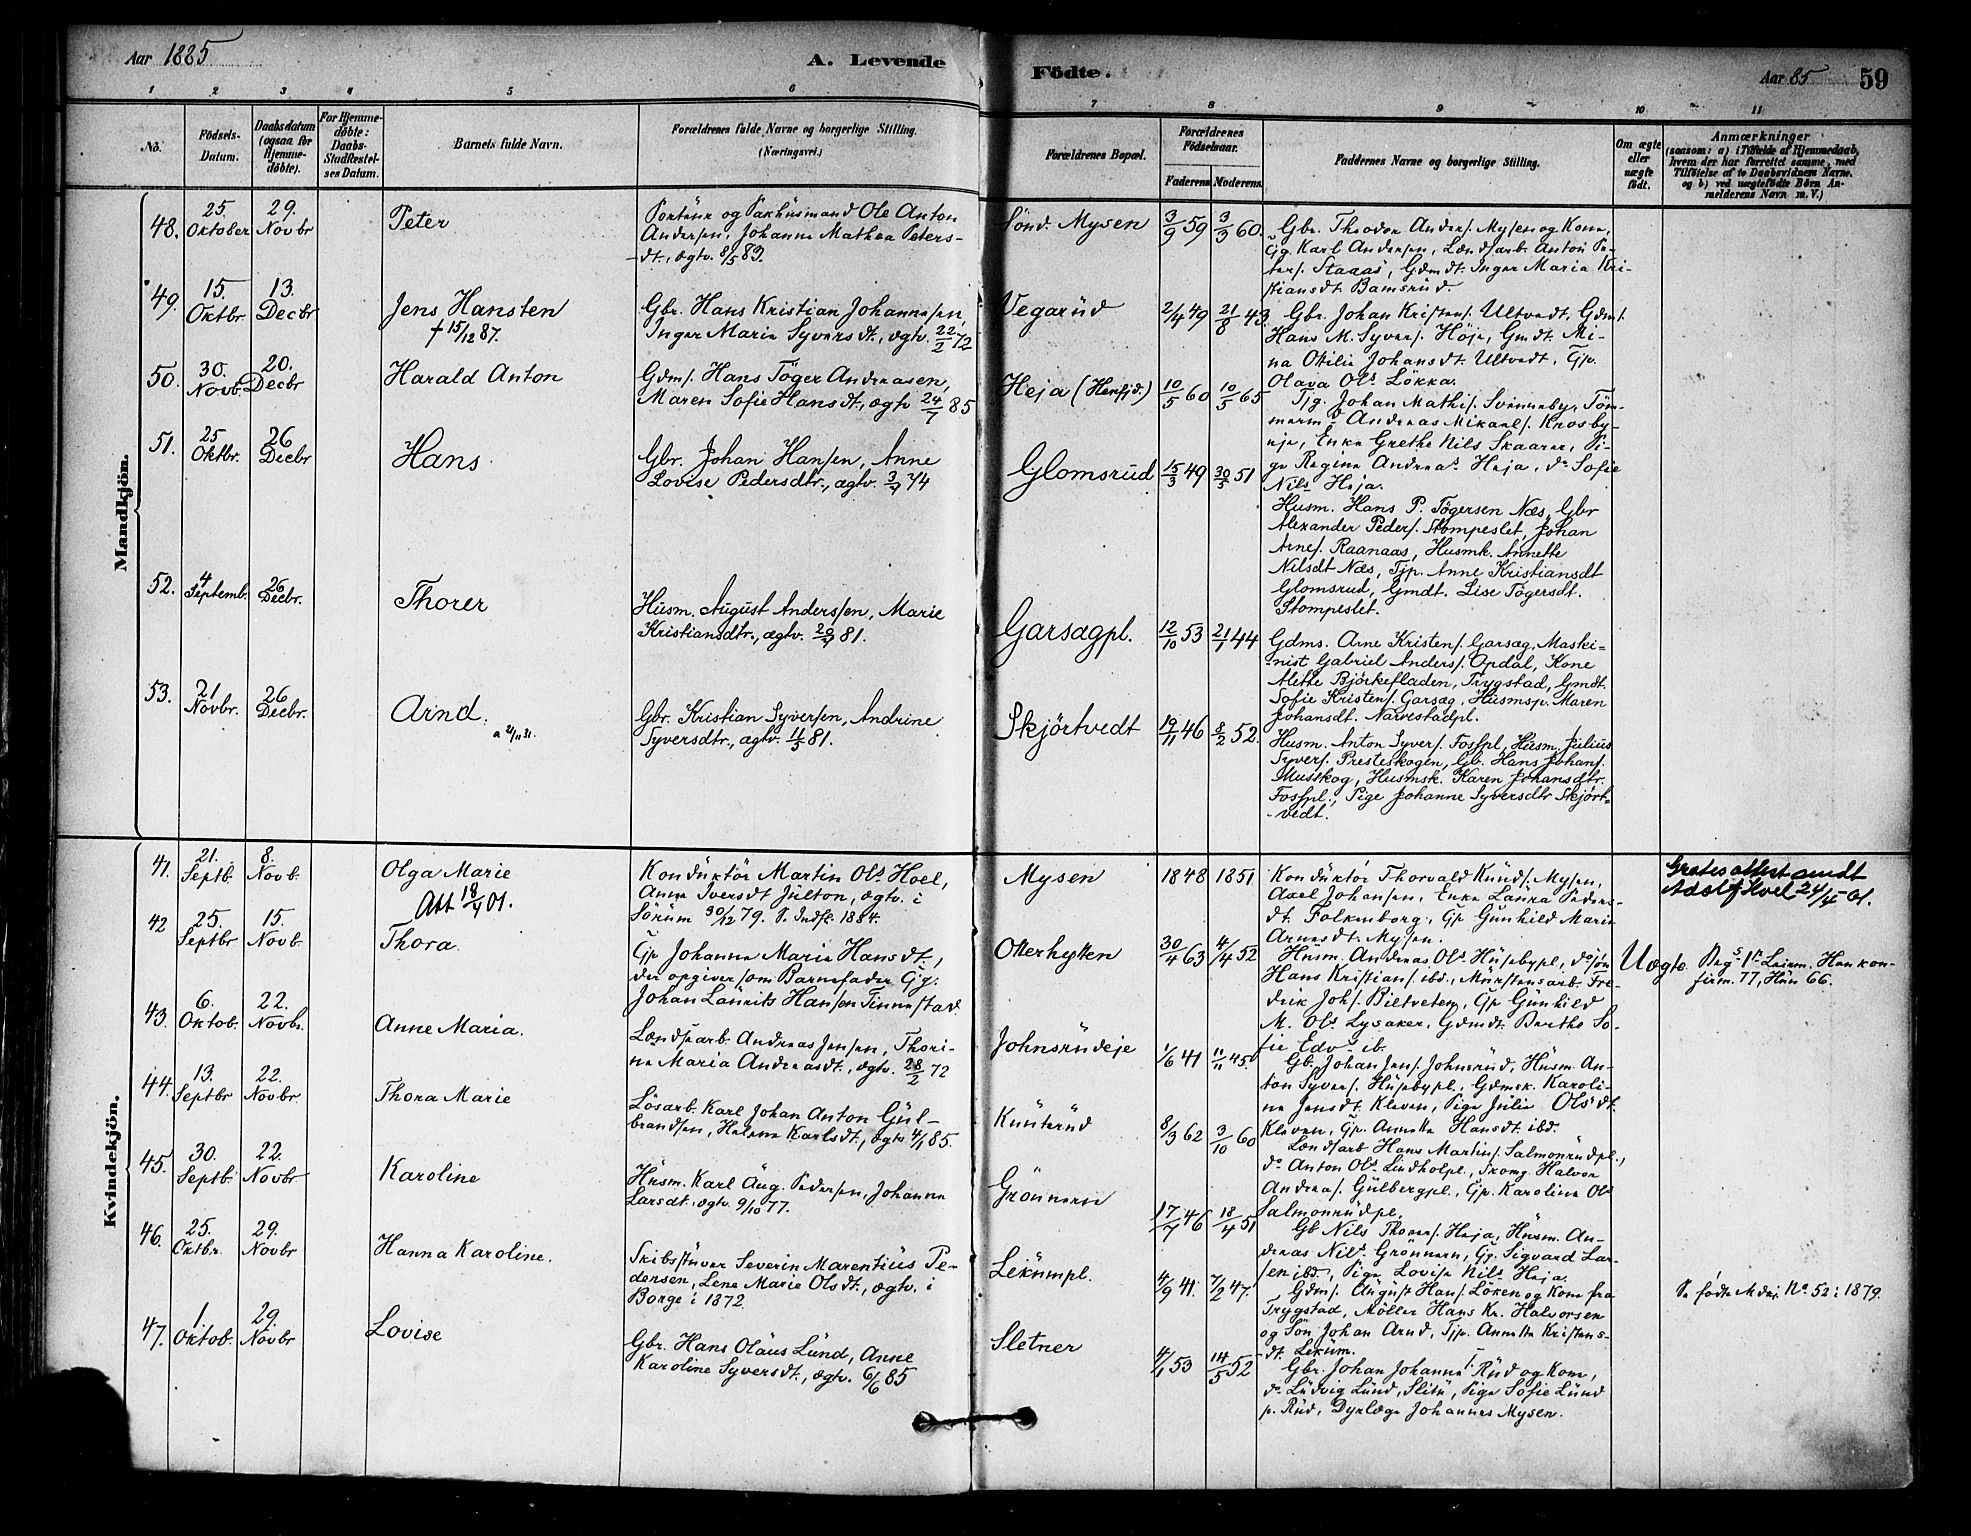 Aar 1885
A. Levende
Födte.
Aar 85 59
1 2 3 4 5 6 7 8 9 10 11
No.
Födsels-
Datum.
Daabsdatum
(ogsaa for
Hjemme-
döbte).
For Hjemme-
döbte:
Daabs-
Stadfæstel-
ses Datum.
Barnets fulde Navn.
Forældrenes fulde Navne og borgerlige Stilling.
(Næringsvei.)
Forældrenes Bopæl.
Forældrenes
Födselsaar.
Faderens Moderens
Faddernes Navne og borgerlige Stilling.
Om ægte
eller
uægte
födt.
Anmærkninger
(saasom: a) i Tilfælde af Hjemmedaab,
hvem der har forrettet samme, med
Tilföielse af to Daabsvidners Navne,
og b) ved uægtefödte Börn An-
melderens Navn m. V.)
Mandkjön.
48.
25.
Oktober
29.
Novbr
Peter
Portör og Pakhusmand Ole Anton
Andersen, Johanne Mathea Peters-
dt., ægtv. 8/5 83.
Sönd. Mysen
3/9 59
3/3 60.
Gbr. Theodor Anders. Mysen og Kone,
Gg Karl Andersen, Landarb. Anton Pe-
ters. Staaas, Gdmdt. Inger Maria Kri-
stiansdt Bamsrud.
49.
15.
Oktbr
13.
Decbr
Jens Hansten
† 15/12 87.
Gbr. Hans Kristian Johannesen
Inger Maria Syversdt., ægtv. 22/2 72
Vegarud
2/4 49
21/8 43.
Gbr. Johan Kristens. Ultvedt, Gdms.
Hans M. Syvers. Höje, Gmdt. Mi-
na Otilie Johansdt. Ultvedt, Tjp.
Olava Ols. Lökka.
50.
30.
Novb.
20.
Decbr
Harald Anton
Gdms. Hans Töger Andreasen,
Maren Sofie Hansdt., ægtv 24/7 85
Heja (Henjd.)
10/5 60
10/5 65
Tjg. Johan Mathis. Svinneby, Töm-
merm. Andreas Mikaels. Krosby-
eje, Enke Grethe Nils Skaarer, Pi-
ge Regine Andreas. Heja, do Sofie
Nils. Heja.
51.
25
Oktbr.
26
Decbr
Hans
Gbr. Johan Hansen, Anne
Lovise Pedersdtr., ægtv. 3/7 74
Glomsrud
15/3 49
30/5 51
Husm. Hans P. Tögersen Næs, Gbr
Alexander Peders. Stompeslet, Johan
Arnes. Raanaas, Husmk. Annette
Nilsdt Næs, Tjp. Anne Kristiansdt
Glomsrud, Gmdt. Lise Tögersdt.
Stompeslet.
52.
4
Septemb.
26
Decbr.
Thorer
Husm. August Anderssen, Marie
Kristiansdtr., ægtv. 20/7 81.
Garsagpl.
12/10 53
21/1 44
Gdms. Arne Kristens. Garsæg, Maski-
nist Gabriel Anders. Opdal, Kone
Alette Björkefladen, Trygstad, Gmdt.
Sofie Kristens. Garsæg, Husmsp. Maren
Johansdt. Narvestadpl.
53.
21
Novbr.
26
Decbr.
Arnd.
a 2/11 31.
Gbr. Kristian Syversen, Andrine
Syversdtr., ægtv. 11/5 81.
Skjörtvedt
19/11 46
8/2 52.
Husm. Anton Syvers. Fosspl, Husm. Julius
Syvers. Presteskogen, Gb. Hans Johans.
Musskog, Husmsk. Karen Johansdtr.
Fosspl., Pige Johanne Syversdtr Skjört-
vedt.
Kvindekjön.
41.
21.
Septb.
8.
Novb.
Olga Marie
Att 18/7 01.
Konduktör Martin Ols Hoel,
Anna Iversdt Julton, ægtv. i
Sörum 30/12 79. P. Indfl. 1884.
Mysen
1848
1851.
Konduktör Thorvald Knuds. Mysen,
Axel Johansen, Enke Laura Peders-
dt. Folkenborg, Gp Gunhild Marie
Arnesdt. Mysen.
Gratis attest sendt
Adolf Hoel 24/4-01.
42
25.
Septbr
15.
Novb.
Thora.
Gp Johanne Maria Hansdt.,
der opgiver som Barnefader Gg.
Johan Laurits Hansen Finnestad
Otterhytten
30/4 63
4/4 52
Husm. Andreas Ols. Husebypl, do sön
Hans Kristians. ibd., Murstensarb. Fre-
drik Johs. Bietveten, Gp Gunhild
M. Ols Lysaker, Gdmdt. Berthe So-
fie Edvs ib.
Uægte
Begs 1ste Leierm. Han kon-
firm. 77, Hun 66.
43.
6.
Oktob.
22.
Novbr.
Anne Maria.
Landsarb Andreas Jensen, Thori-
ne Maria Andreasdt., ægtv. 28/2 72
Johnsrudeje
1/6 41
11/11 45.
Gb. Johan Jens. Johnsrud, Husm. An-
ton Syvers. Husebypl., Gdmsk. Karoli-
ne Jensdt. Kleven, Pige Julie Olsdt.
Kleven, Gp. Annette Hansdt. ibd.
44.
13.
Septbr
22.
Novbr.
Thora Marie
Lösarb. Karl Johan Anton Gul-
brandsen, Helene Karlsdt., ægtv 4/1 85.
Kunterud
8/3 62
3/10 60
Landsarb Hans Martins. Salmonrudpl.,
do Anton Ols. Lindholpl., Skomg. Halvor
Andreas. Gulbergpl., Gp. Karoline Ols
Salmonrudpl.
45.
30.
Septb.
22.
Novbr
Karoline
Husm. Karl Aug. Pedersen, Johanne
Larsdt., ægtv. 9/10 77.
Grönnern
17/7 46
18/4 51
Gb Nils Thorers. Heja, Husm. An-
dreas Nils. Grönnern, Gg. Sigvard Lar-
sen ibd., Pige Lovise Nils. Heja.
46.
25.
Oktbr.
29.
Novbr
Hanna Karoline.
Skibsstuver Severin Marentius Pe-
dersen, Lene Marie Olsdt., ægtv. i
Borge i 1872.
Lekumpl.
4/9 41.
7/2 47.
Gdms. August Hans. Löken og Kone fra
Trygstad, Möller Hans Kr. Halvorsen
og Sön Johan Arnd, Tjp. Annette Kristens-
dt. Lekum.
Se födte Mdkj. No 52 i 1879.
47.
1.
Oktob.
29.
Novbr
Lovise
Gbr. Hans Olaus Lund, Anne
Karoline Syversdt., ægtv. 6/6 85
Sletner
4/1 53
14/5 52
Gbr. Johan Johannes. Rud og Kone,
do Ludvig Lund, Slitu, Pige Sofie Lund
p. Rud, Dyrlæge Johannes Mysen.